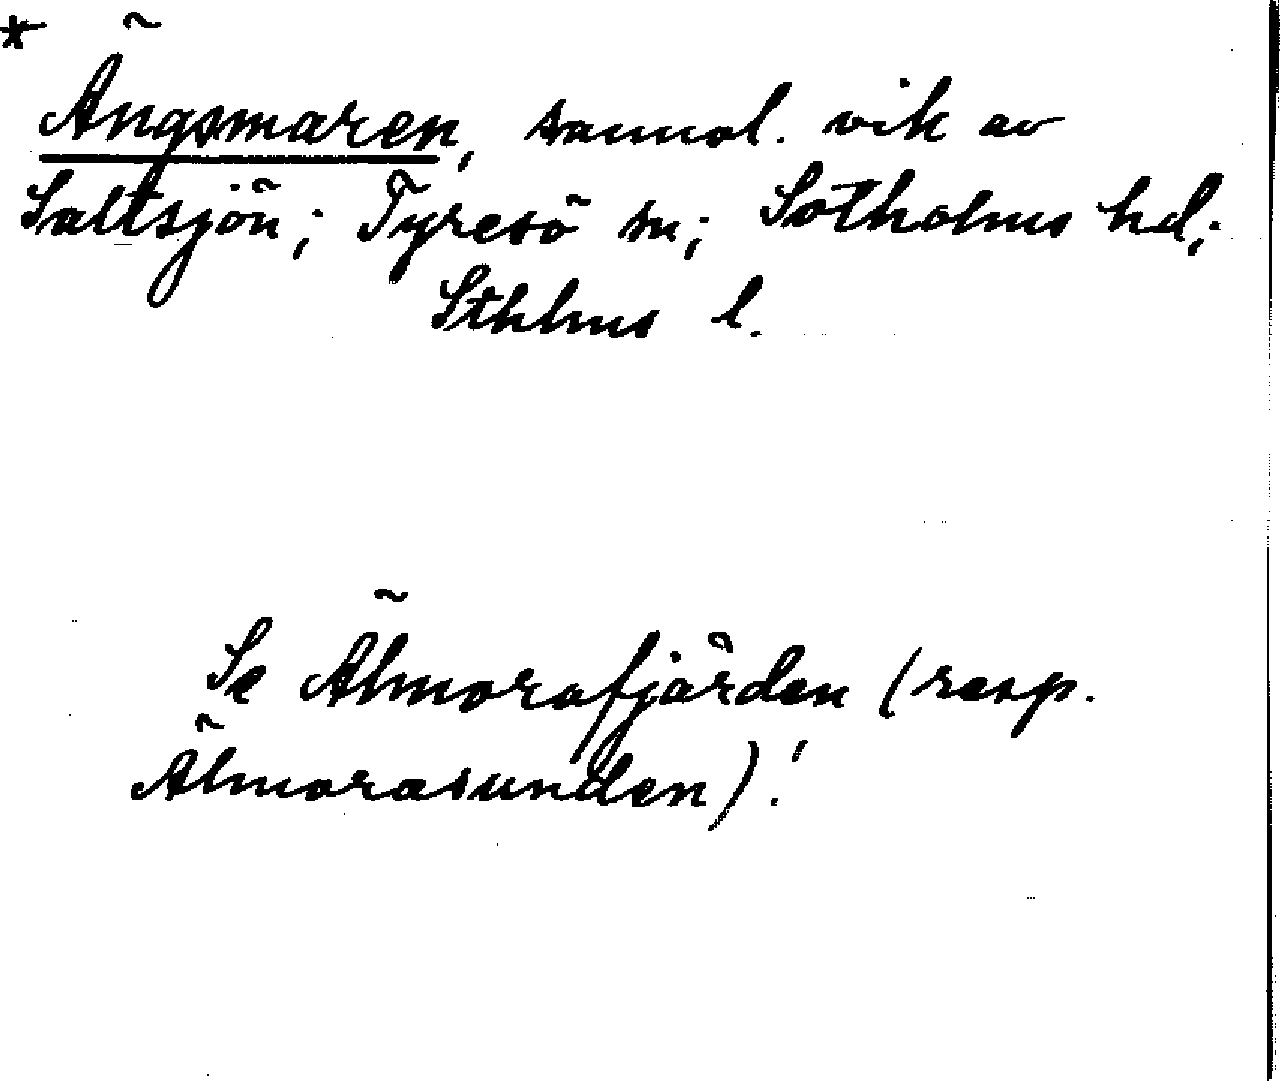 * Ängsmaren, sannol. vik av
Saltsjön; Tyresö sn; Sotholms hd;
Sthlms l.
Se Älmorafjärden (resp.
Älmorasunden)!